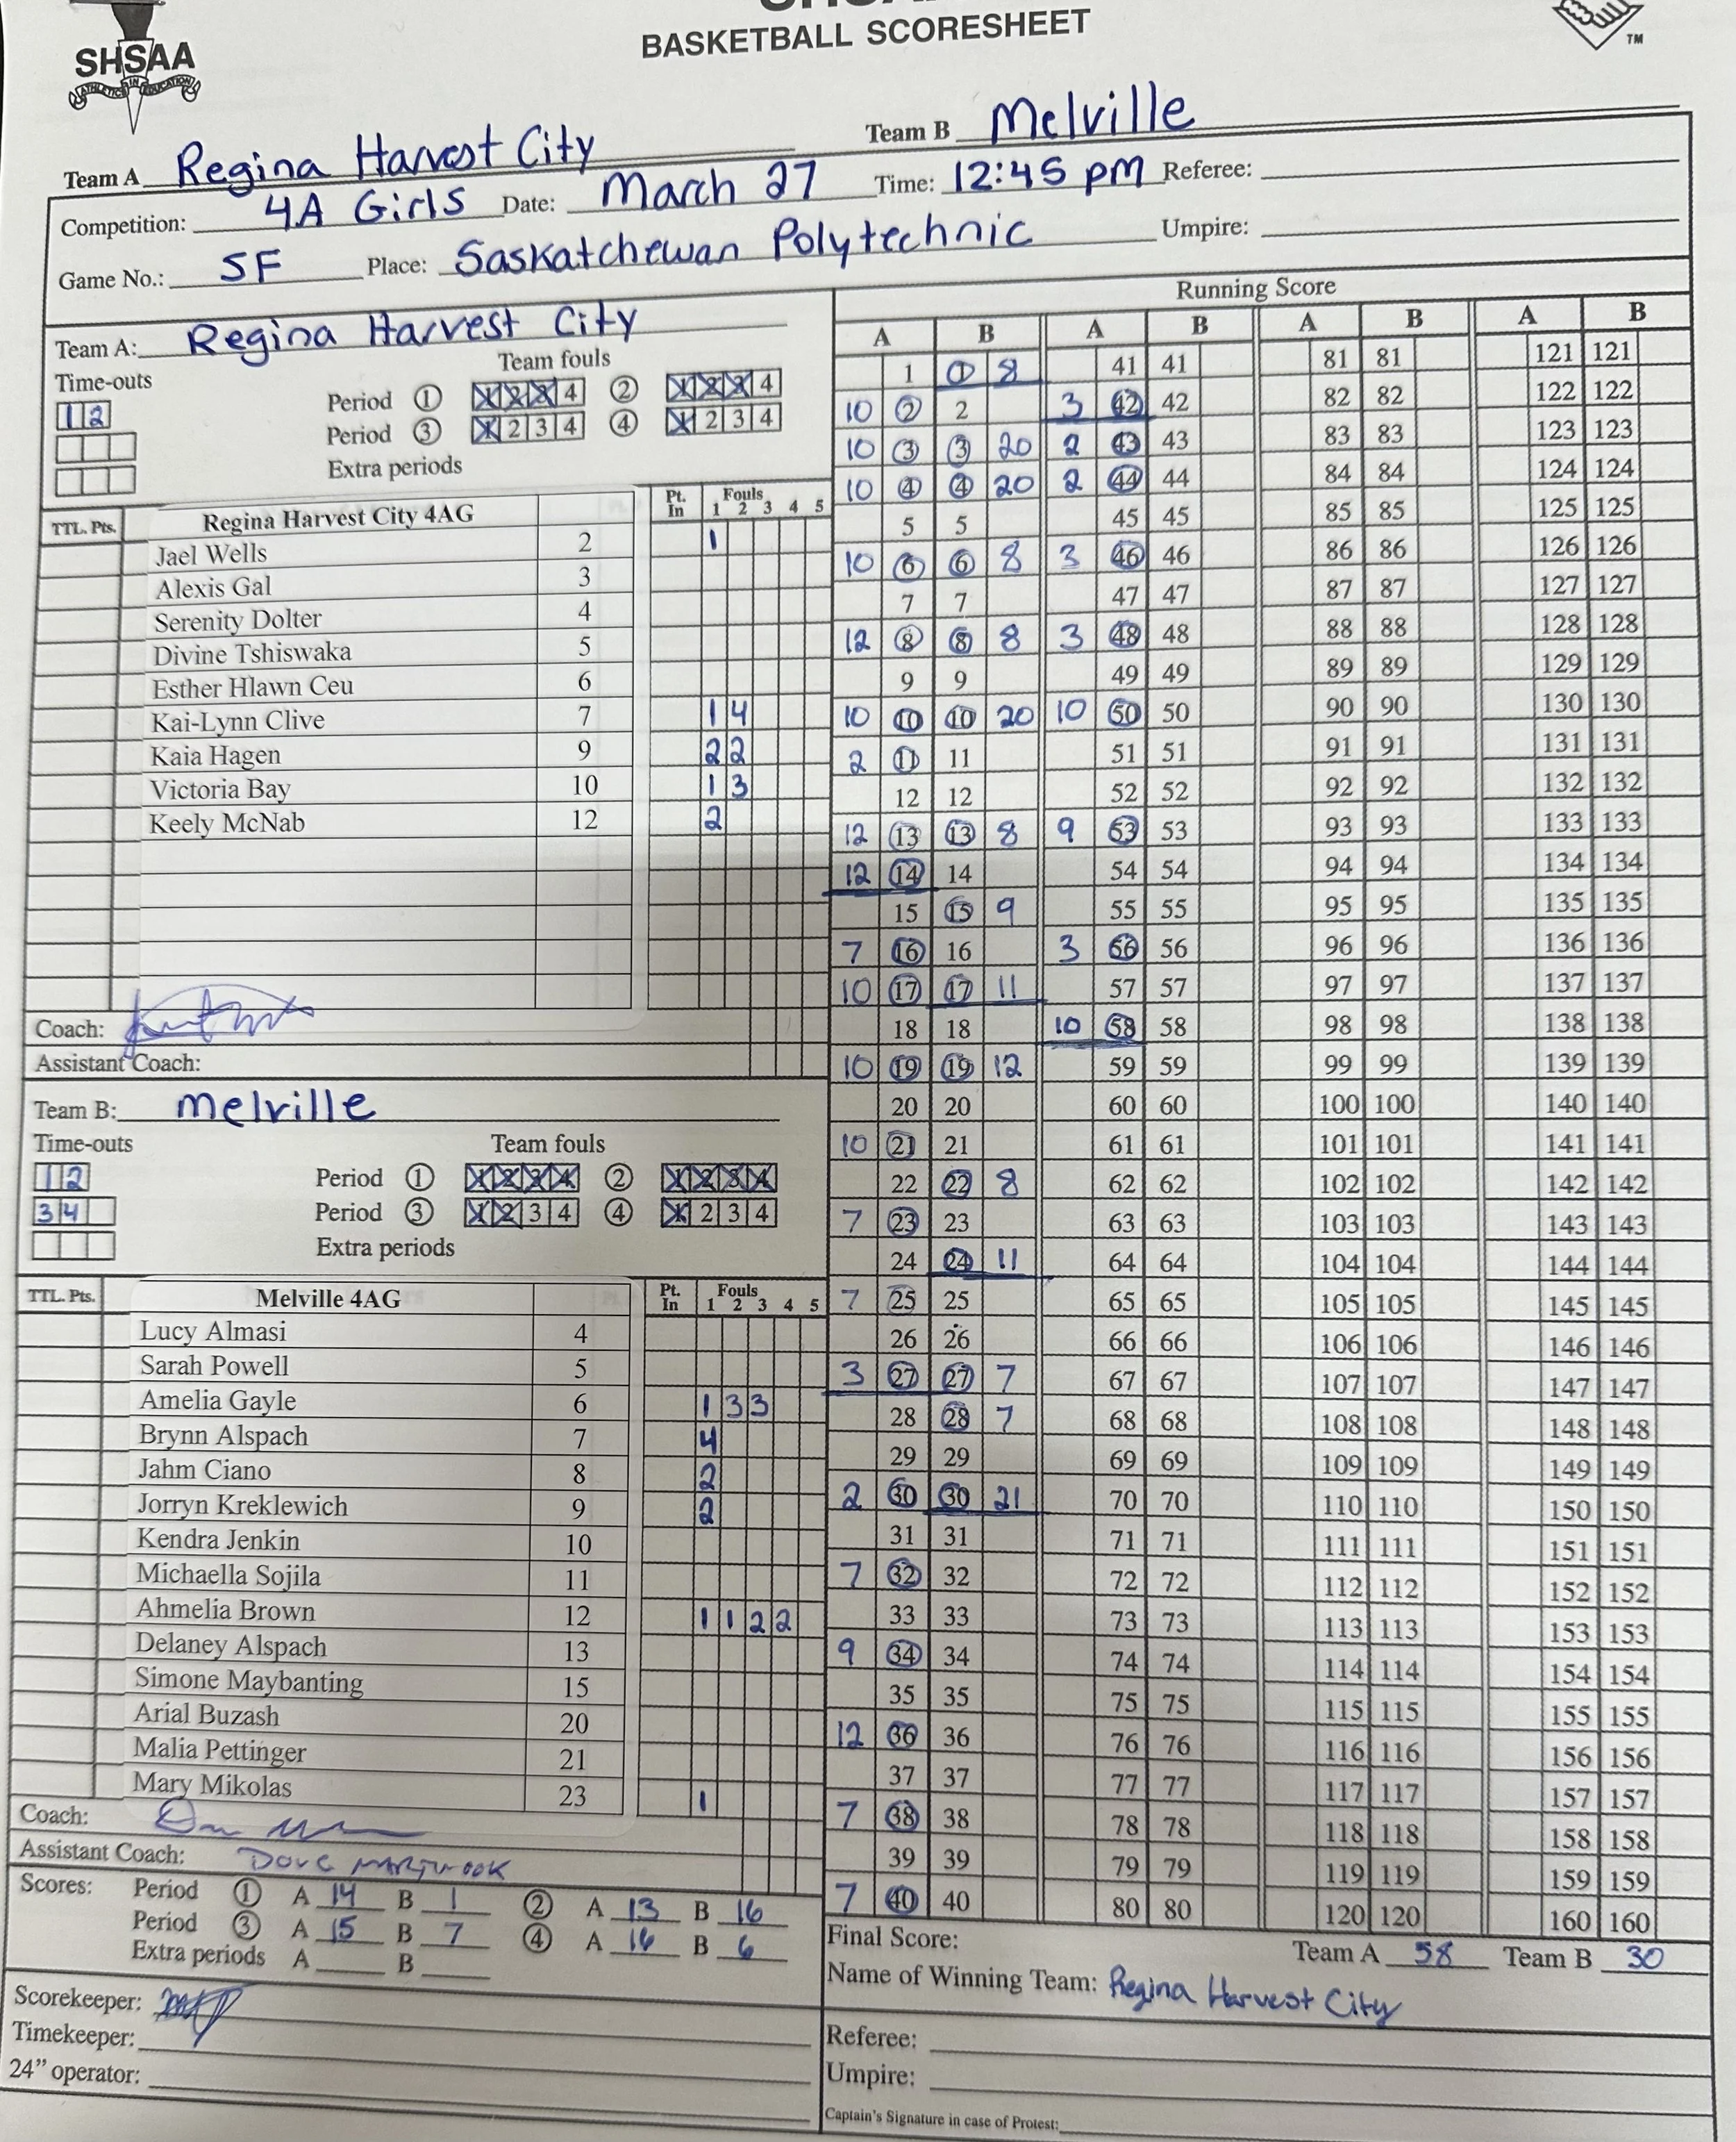 SHSAA
ATHLETICS IN EDUCATION
BASKETBALL SCORESHEET
TM
Team A Regina Harvest City Team B Melville
Competition: 4A Girls Date: March 27 Time: 12:45 pm Referee:
Game No.: SF Place: Saskatchewan Polytechnic Umpire:
Team A: Regina Harvest City
Time-outs Team fouls
1 2 Period 1 1 2 3 4 2 1 2 3 4
Period 3 1 2 3 4 4 1 2 3 4
Extra periods
TTL. Pts. Regina Harvest City 4AG Pt. In Fouls 1 2 3 4 5
Jael Wells 2 1
Alexis Gal 3
Serenity Dolter 4
Divine Tshiswaka 5
Esther Hlawn Ceu 6
Kai-Lynn Clive 7 1 4
Kaia Hagen 9 2 2
Victoria Bay 10 1 3
Keely McNab 12 2
Coach:
Assistant Coach:
Team B: Melville
Time-outs Team fouls
1 2 Period 1 1 2 3 4 2 1 2 3 4
3 4 Period 3 1 2 3 4 4 1 2 3 4
Extra periods
TTL. Pts. Melville 4AG Pt. In Fouls 1 2 3 4 5
Lucy Almasi 4
Sarah Powell 5
Amelia Gayle 6 1 3 3
Brynn Alspach 7 4
Jahm Ciano 8 2
Jorryn Kreklewich 9 2
Kendra Jenkin 10
Michaella Sojila 11
Ahmelia Brown 12 1 1 2 2
Delaney Alspach 13
Simone Maybanting 15
Arial Buzash 20
Malia Pettinger 21
Mary Mikolas 23 1
Coach:
Assistant Coach: DOUG
Scores: Period 1 A 14 B 1 2 A 13 B 16
Period 3 A 15 B 7 4 A 16 B 6
Extra periods A B
Scorekeeper:
Timekeeper:
24” operator:
Running Score
A B A B A B A B
1 1 8 41 41 81 81 121 121
10 2 2 3 42 42 82 82 122 122
10 3 3 20 2 43 43 83 83 123 123
10 4 4 20 2 44 44 84 84 124 124
5 5 45 45 85 85 125 125
10 6 6 8 3 46 46 86 86 126 126
7 7 47 47 87 87 127 127
12 8 8 8 3 48 48 88 88 128 128
9 9 49 49 89 89 129 129
10 10 10 20 10 50 50 90 90 130 130
2 11 11 51 51 91 91 131 131
12 12 52 52 92 92 132 132
12 13 13 8 9 53 53 93 93 133 133
12 14 14 54 54 94 94 134 134
15 15 9 55 55 95 95 135 135
7 16 16 3 56 56 96 96 136 136
10 17 17 11 57 57 97 97 137 137
18 18 10 58 58 98 98 138 138
10 19 19 12 59 59 99 99 139 139
20 20 60 60 100 100 140 140
10 21 21 61 61 101 101 141 141
22 22 8 62 62 102 102 142 142
7 23 23 63 63 103 103 143 143
24 24 11 64 64 104 104 144 144
7 25 25 65 65 105 105 145 145
26 26 66 66 106 106 146 146
3 27 27 7 67 67 107 107 147 147
28 28 7 68 68 108 108 148 148
29 29 69 69 109 109 149 149
2 30 30 21 70 70 110 110 150 150
31 31 71 71 111 111 151 151
7 32 32 72 72 112 112 152 152
33 33 73 73 113 113 153 153
9 34 34 74 74 114 114 154 154
35 35 75 75 115 115 155 155
12 36 36 76 76 116 116 156 156
37 37 77 77 117 117 157 157
7 38 38 78 78 118 118 158 158
39 39 79 79 119 119 159 159
7 40 40 80 80 120 120 160 160
Final Score: Team A 58 Team B 30
Name of Winning Team: Regina Harvest City
Referee:
Umpire:
Captain's Signature in case of Protest: